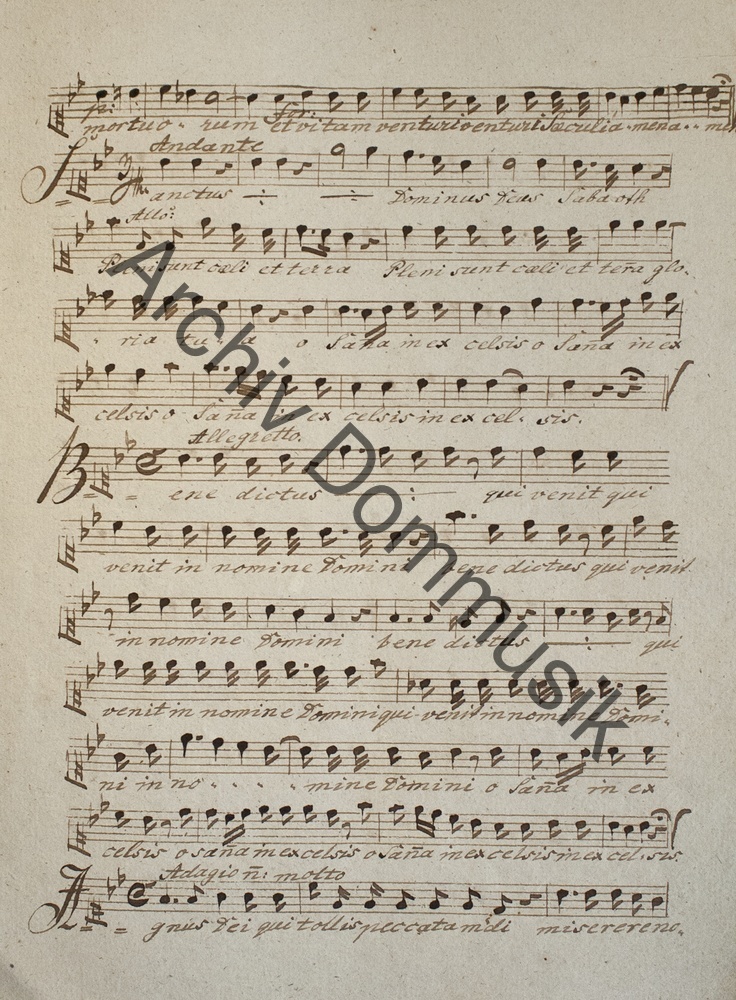 pi: for:
mortuo - rum et vitam venturi venturi Sæculi a - mena - - men
Andante
Sanctus Dominus Deus Sabaoth
Allo:
Pleni sunt cæli et terra Pleni sunt cæli et terra glo -
- ria tu - a o Sana in ex celsis o Sana in ex
celsis o Sana in ex celsis in ex cel - sis.
Allegretto.
Bene dictus qui venit qui
venit in nomine Domini bene dictus qui venit
in nomine Domini bene dictus qui
venit in nomine Domini qui venit in nomine Domi -
ni in no - - - - mine Domini o Sana in ex
celsis o sana in ex celsis o Sana in ex celsis in ex cel - sis.
Adagio n: molto
Agnus Dei qui tollis peccata mdi miserere no -
Archiv Dommusik